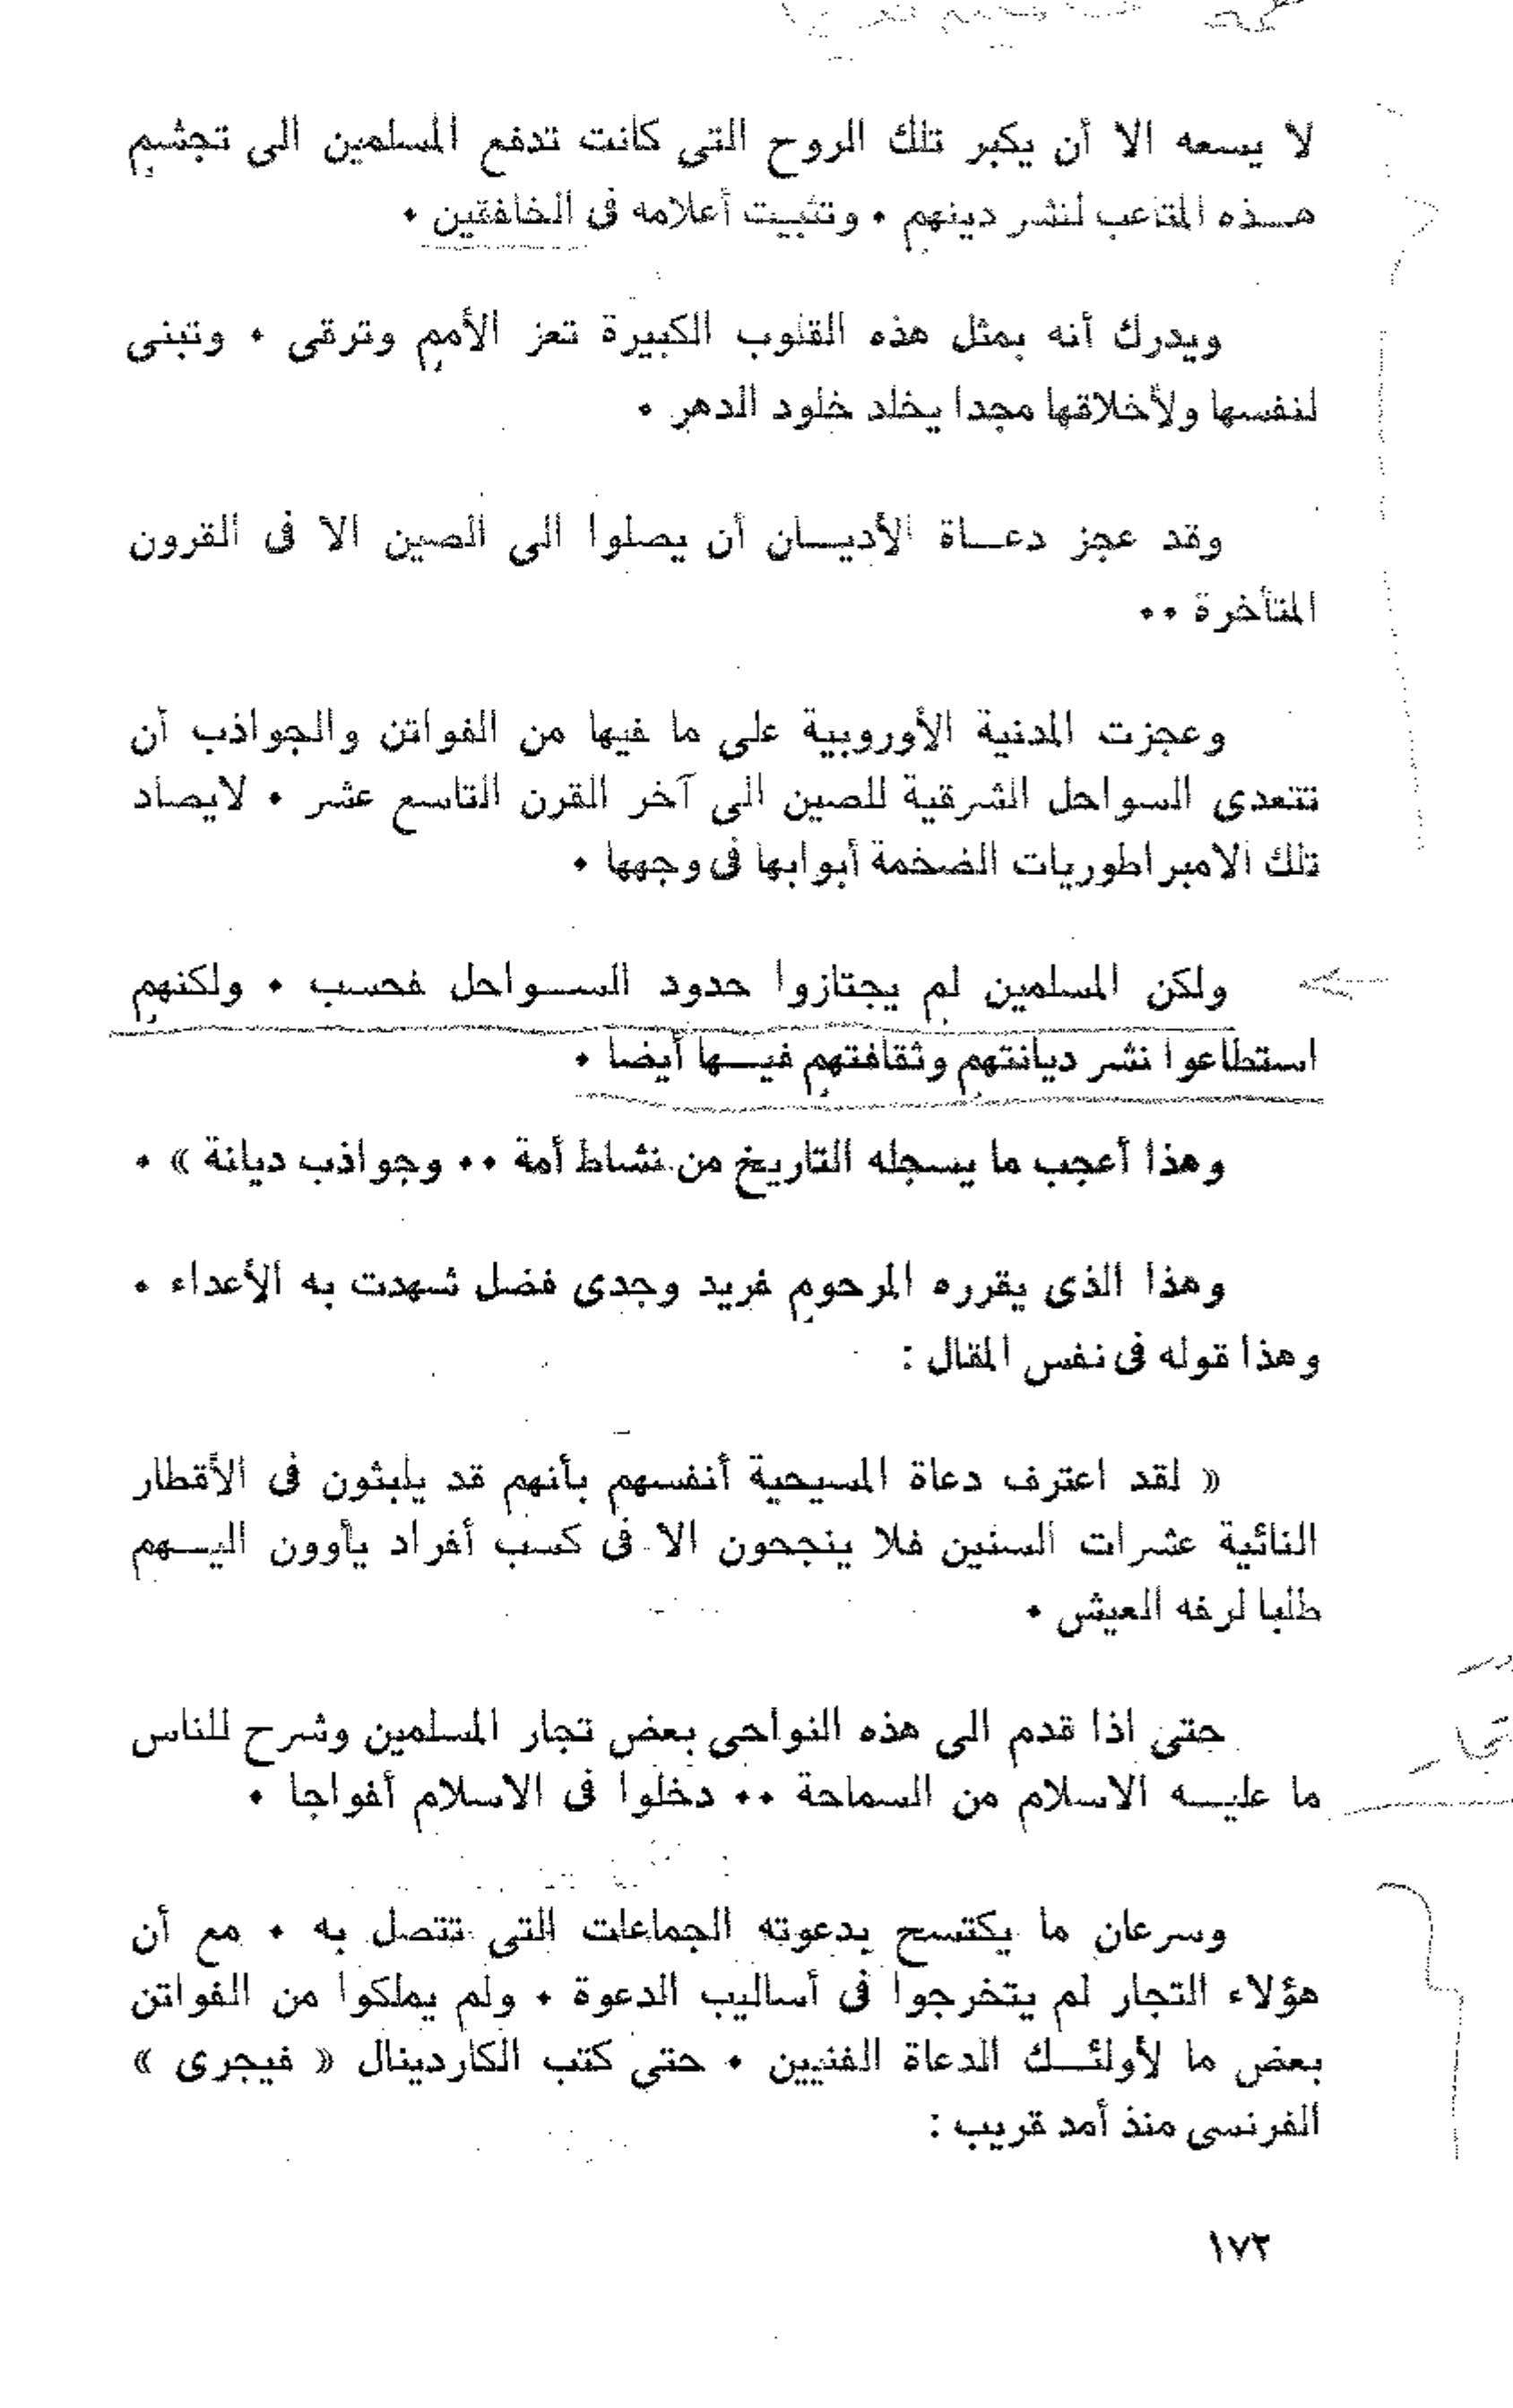 لا يسعه الا أن يكبر تلك الروح التى كانت تدفع المسلمين الى تجشم
هـــذه المتاعب لنشر دينهم ٠ وتثبيت أعلامه فى الخافقين ٠
ويدرك أنه بمثل هذه القلوب الكبيرة تعز الأمم وترقى ٠ وتبنى
لنفسها ولأخلاقها مجدا يخلد خلود الدهر ٠
وقد عجز دعـــاة الأديـــان أن يصلوا الى الصين الا فى القرون
المتأخرة ٠٠
وعجزت المدنية الأوروبية على ما فيها من الفواتن والجواذب أن
تتعدى السواحل الشرقية للصين الى آخر القرن التاسع عشر ٠ لايصاد
تلك الامبراطوريات الضخمة أبوابها فى وجهها ٠
ولكن المسلمين لم يجتازوا حدود الســـواحل فحسب ٠ ولكنهم
استطاعوا نشر ديانتهم وثقافتهم فيـــها أيضا ٠
وهذا أعجب ما يسجله التاريخ من نشاط أمة ٠٠ وجواذب ديانة » ٠
وهذا الذى يقرره المرحوم فريد وجدى فضل شهدت به الأعداء ٠
وهذا قوله فى نفس المقال :
« لقد اعترف دعاة المسيحية أنفسهم بأنهم قد يلبثون فى الأقطار
النائية عشرات السنين فلا ينجحون الا فى كسب أفراد يأوون اليـــهم
طلبا لرفه العيش ٠
حتى اذا قدم الى هذه النواحى بعض تجار المسلمين وشرح للناس
ما عليـــه الاسلام من السماحة ٠٠ دخلوا فى الاسلام أفواجا ٠
وسرعان ما يكتسح بدعوته الجماعات التى تتصل به ٠ مع أن
هؤلاء التجار لم يتخرجوا فى أساليب الدعوة ٠ ولم يملكوا من الفواتن
بعض ما لأولئـــك الدعاة الفنيين ٠ حتى كتب الكاردينال « فيجرى »
الفرنسى منذ أمد قريب :
١٧٢